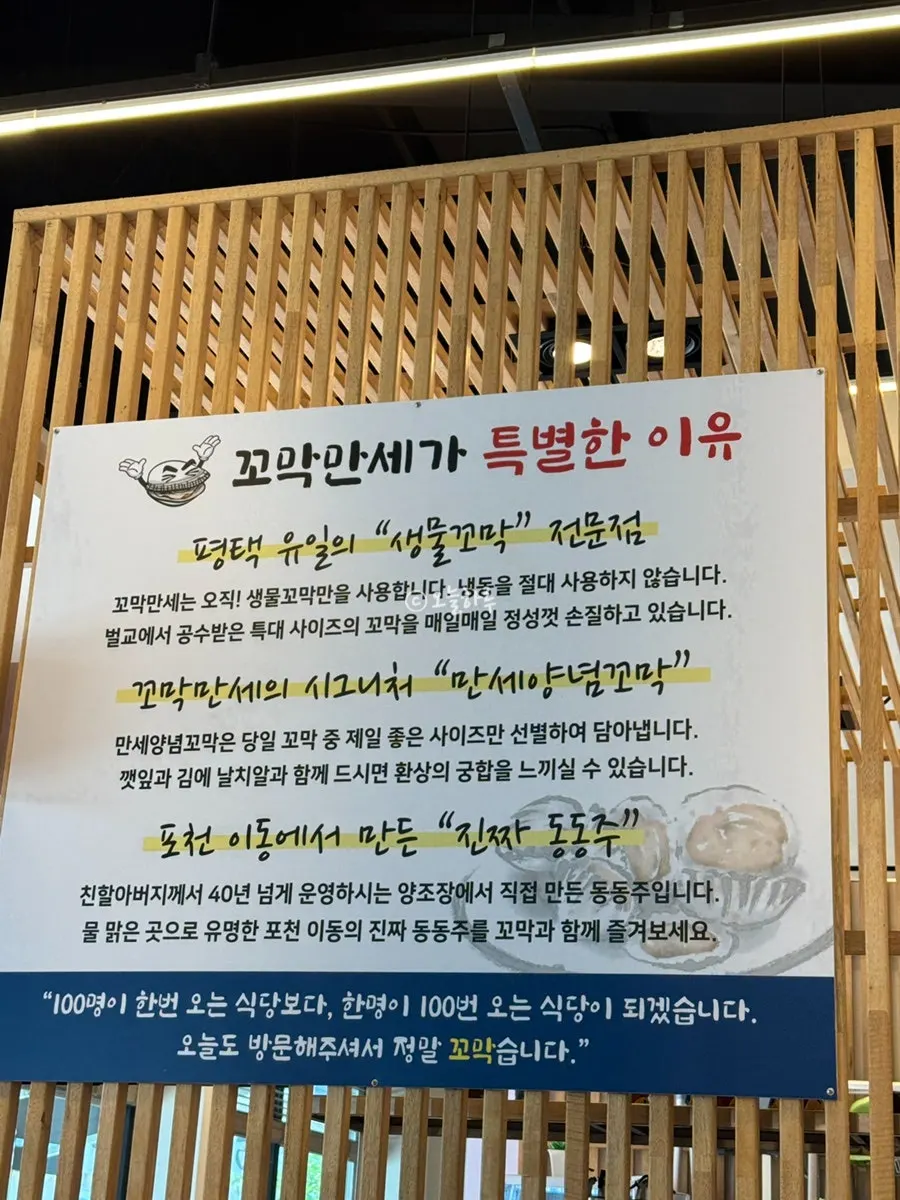 꼬막만세가 특별한 이유
평택 유일의 “생물꼬막” 전문점
꼬막만세는 오직! 생물꼬막만을 사용합니다. 냉동을 절대 사용하지 않습니다.
ⓒ오늘하루
벌교에서 공수받은 특대 사이즈의 꼬막을 매일매일 정성껏 손질하고 있습니다.
꼬막만세의 시그니처 “만세양념꼬막”
만세양념꼬막은 당일 꼬막 중 제일 좋은 사이즈만 선별하여 담아냅니다.
깻잎과 김에 날치알과 함께 드시면 환상의 궁합을 느끼실 수 있습니다.
포천 이동에서 만든 “진짜 동동주”
친할아버지께서 40년 넘게 운영하시는 양조장에서 직접 만든 동동주입니다.
물 맑은 곳으로 유명한 포천 이동의 진짜 동동주를 꼬막과 함께 즐겨보세요.
“100명이 한번 오는 식당보다, 한명이 100번 오는 식당이 되겠습니다.
오늘도 방문해주셔서 정말 꼬막습니다.”